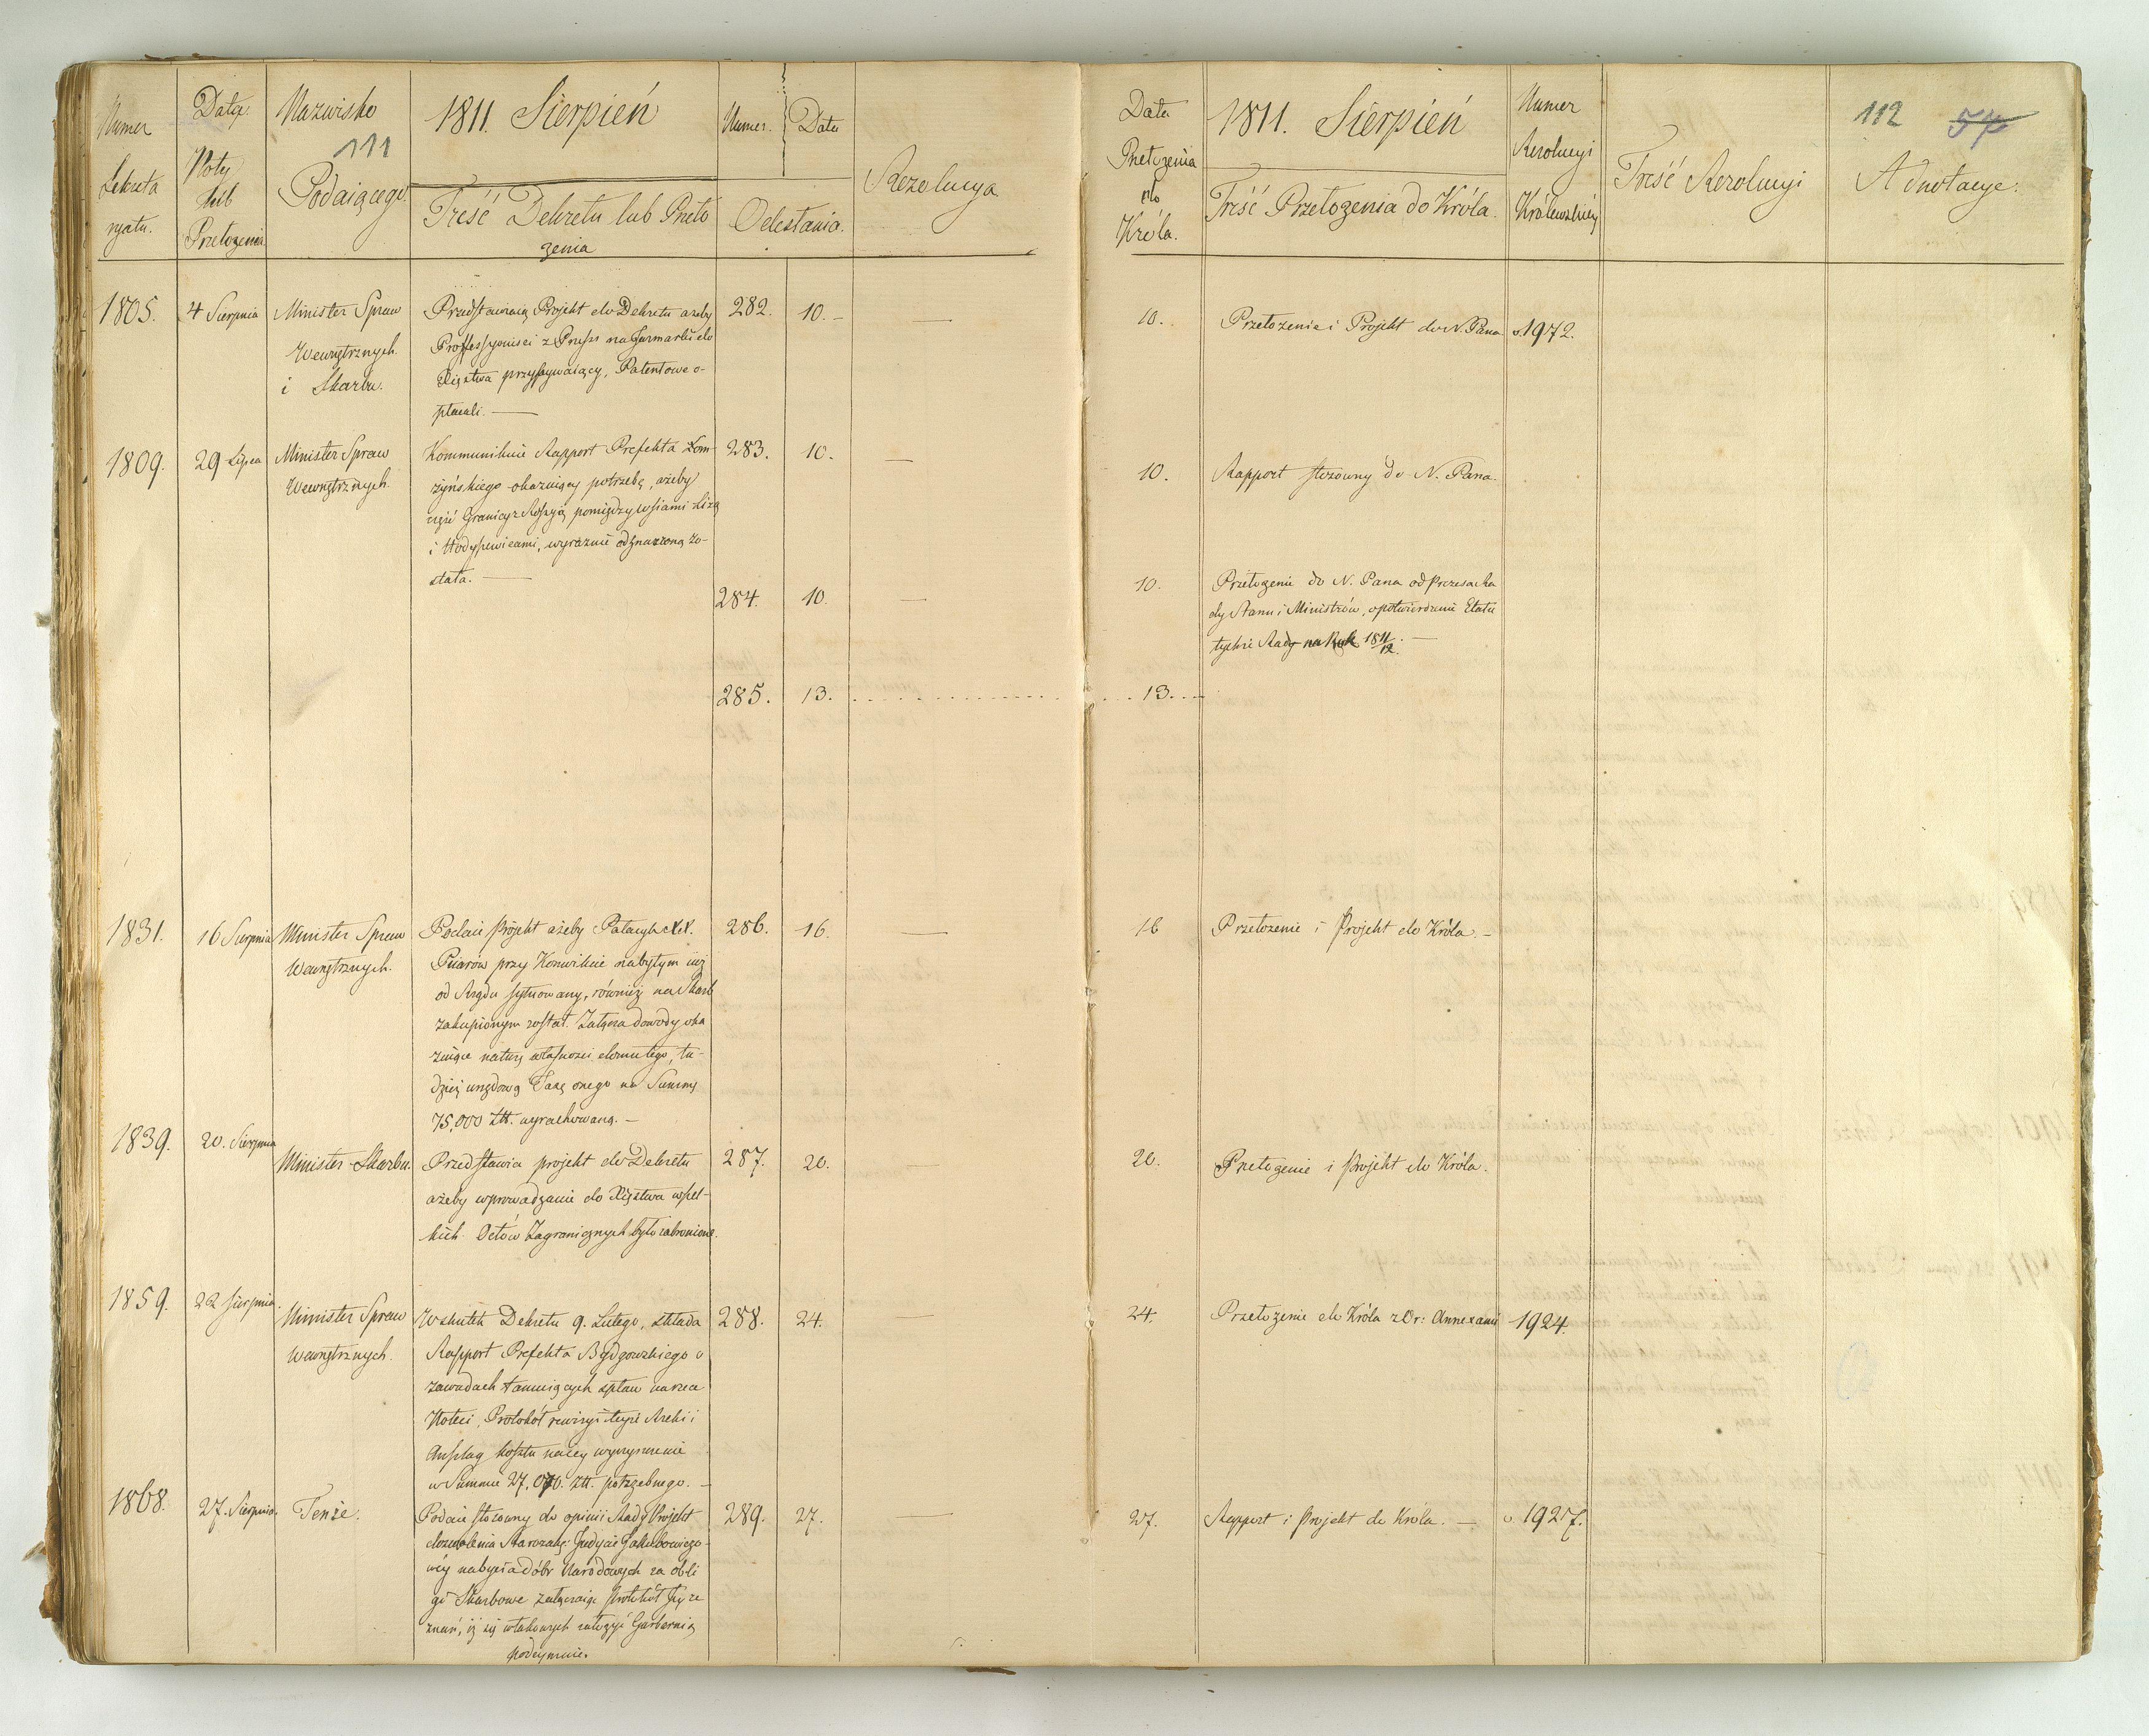 Numer
Sekreta
ryatu.
Data
Noty
lub
Przełożenia
Nazwisko
111
Podaiącego.
1811. Sierpień
Treść Dekretu lub Przeło
żenia
Numer. Data
Odesłania.
Rezolucya
1805. 4 Sierpnia Minister Spraw
Wewnętrznych
i Skarbu.
Przedstawiaią Projekt do Dekretu ażeby
Professyonisci z Pruss na Jarmarki do
Xięstwa przybywaiący, Patentowe o-
płacali. —
282. 10. — —
1809. 29 Lipca Minister Spraw
Wewnętrznych.
Kommunikuie Rapport Prefekta Łom-
żyńskiego okazuiący potrzebę, ażeby
część Granicy z Rossyią pomiędzy wsiami
i wyraznie odznaczoną zo-
stała. —
283. 10. —
284. 10. —
285. 13. . . . . . . . . . . .
1831. 16 Sierpnia Minister Spraw
Wewnętrznych.
Podaie Projekt ażeby Pałacyk XX.
Piiarów przy Konwikcie nabytym iuż
od Rządu sytuowany, również na Skarb
zakupionym został. Załącza dowody oka
zuiące naturę własności domu tego, tu-
dzież urzędową Taxę onego na Summę
75,000 Złł. wyrachowaną. —
286. 16. —
1839. 20. Sierpnia Minister Skarbu.
Przedstawia projekt do Dekretu
ażeby wprowadzanie do Xięstwa wszel-
kich Octów Zagranicznych było zabronione.
287. 20.
1859. 22 Sierpnia. Minister Spraw
Wewnętrznych.
W skutek Dekretu 9. Lutego, składa
Rapport Prefekta Bydgowskiego o
zawadach tamuiących spław na rzece
Noteci, Protokół rewizyi teyże Rzeki i
Anszlag kosztu na iey wyczyszczenie
w Summie Złł. potrzebnego. —
288. 24. —
1868. 27. Sierpnia. Tenże.
Podaie stosowny do opinii Rady Projekt
dozwolenia Starozak: Judycie Jakubowiczo-
wey nabycia dóbr Narodowych za obli
gi Skarbowe załączaiąc Protokół Jey ze
znań, iż się w takowych założyć Garbarnią
podeymuie.
289. 27. —
Data
Przełożenia
do
Króla.
1811. Sierpień
Treść Przełożenia do Króla.
Numer
Rezolucyi
Królewskiéy
Treść Rezolucyi
112 57
Adnotacye.
10. Przełożenie i Projekt do N. Pana 1972.
10. Rapport stosowny do N. Pana.
10. Przełożenie do N. Pana od Prezesa Ra
dy Stanu i Ministrów, o potwierdzenie Etatu
tychże Rady na Rok 1811/12. —
13. . .
16 Przełożenie i Projekt do Króla. —
20. Przełożenie i Projekt do Króla.
24. Przełożenie do Króla z Or: Annexami 1924.
27. Rapport i Projekt do Króla. — 1927.